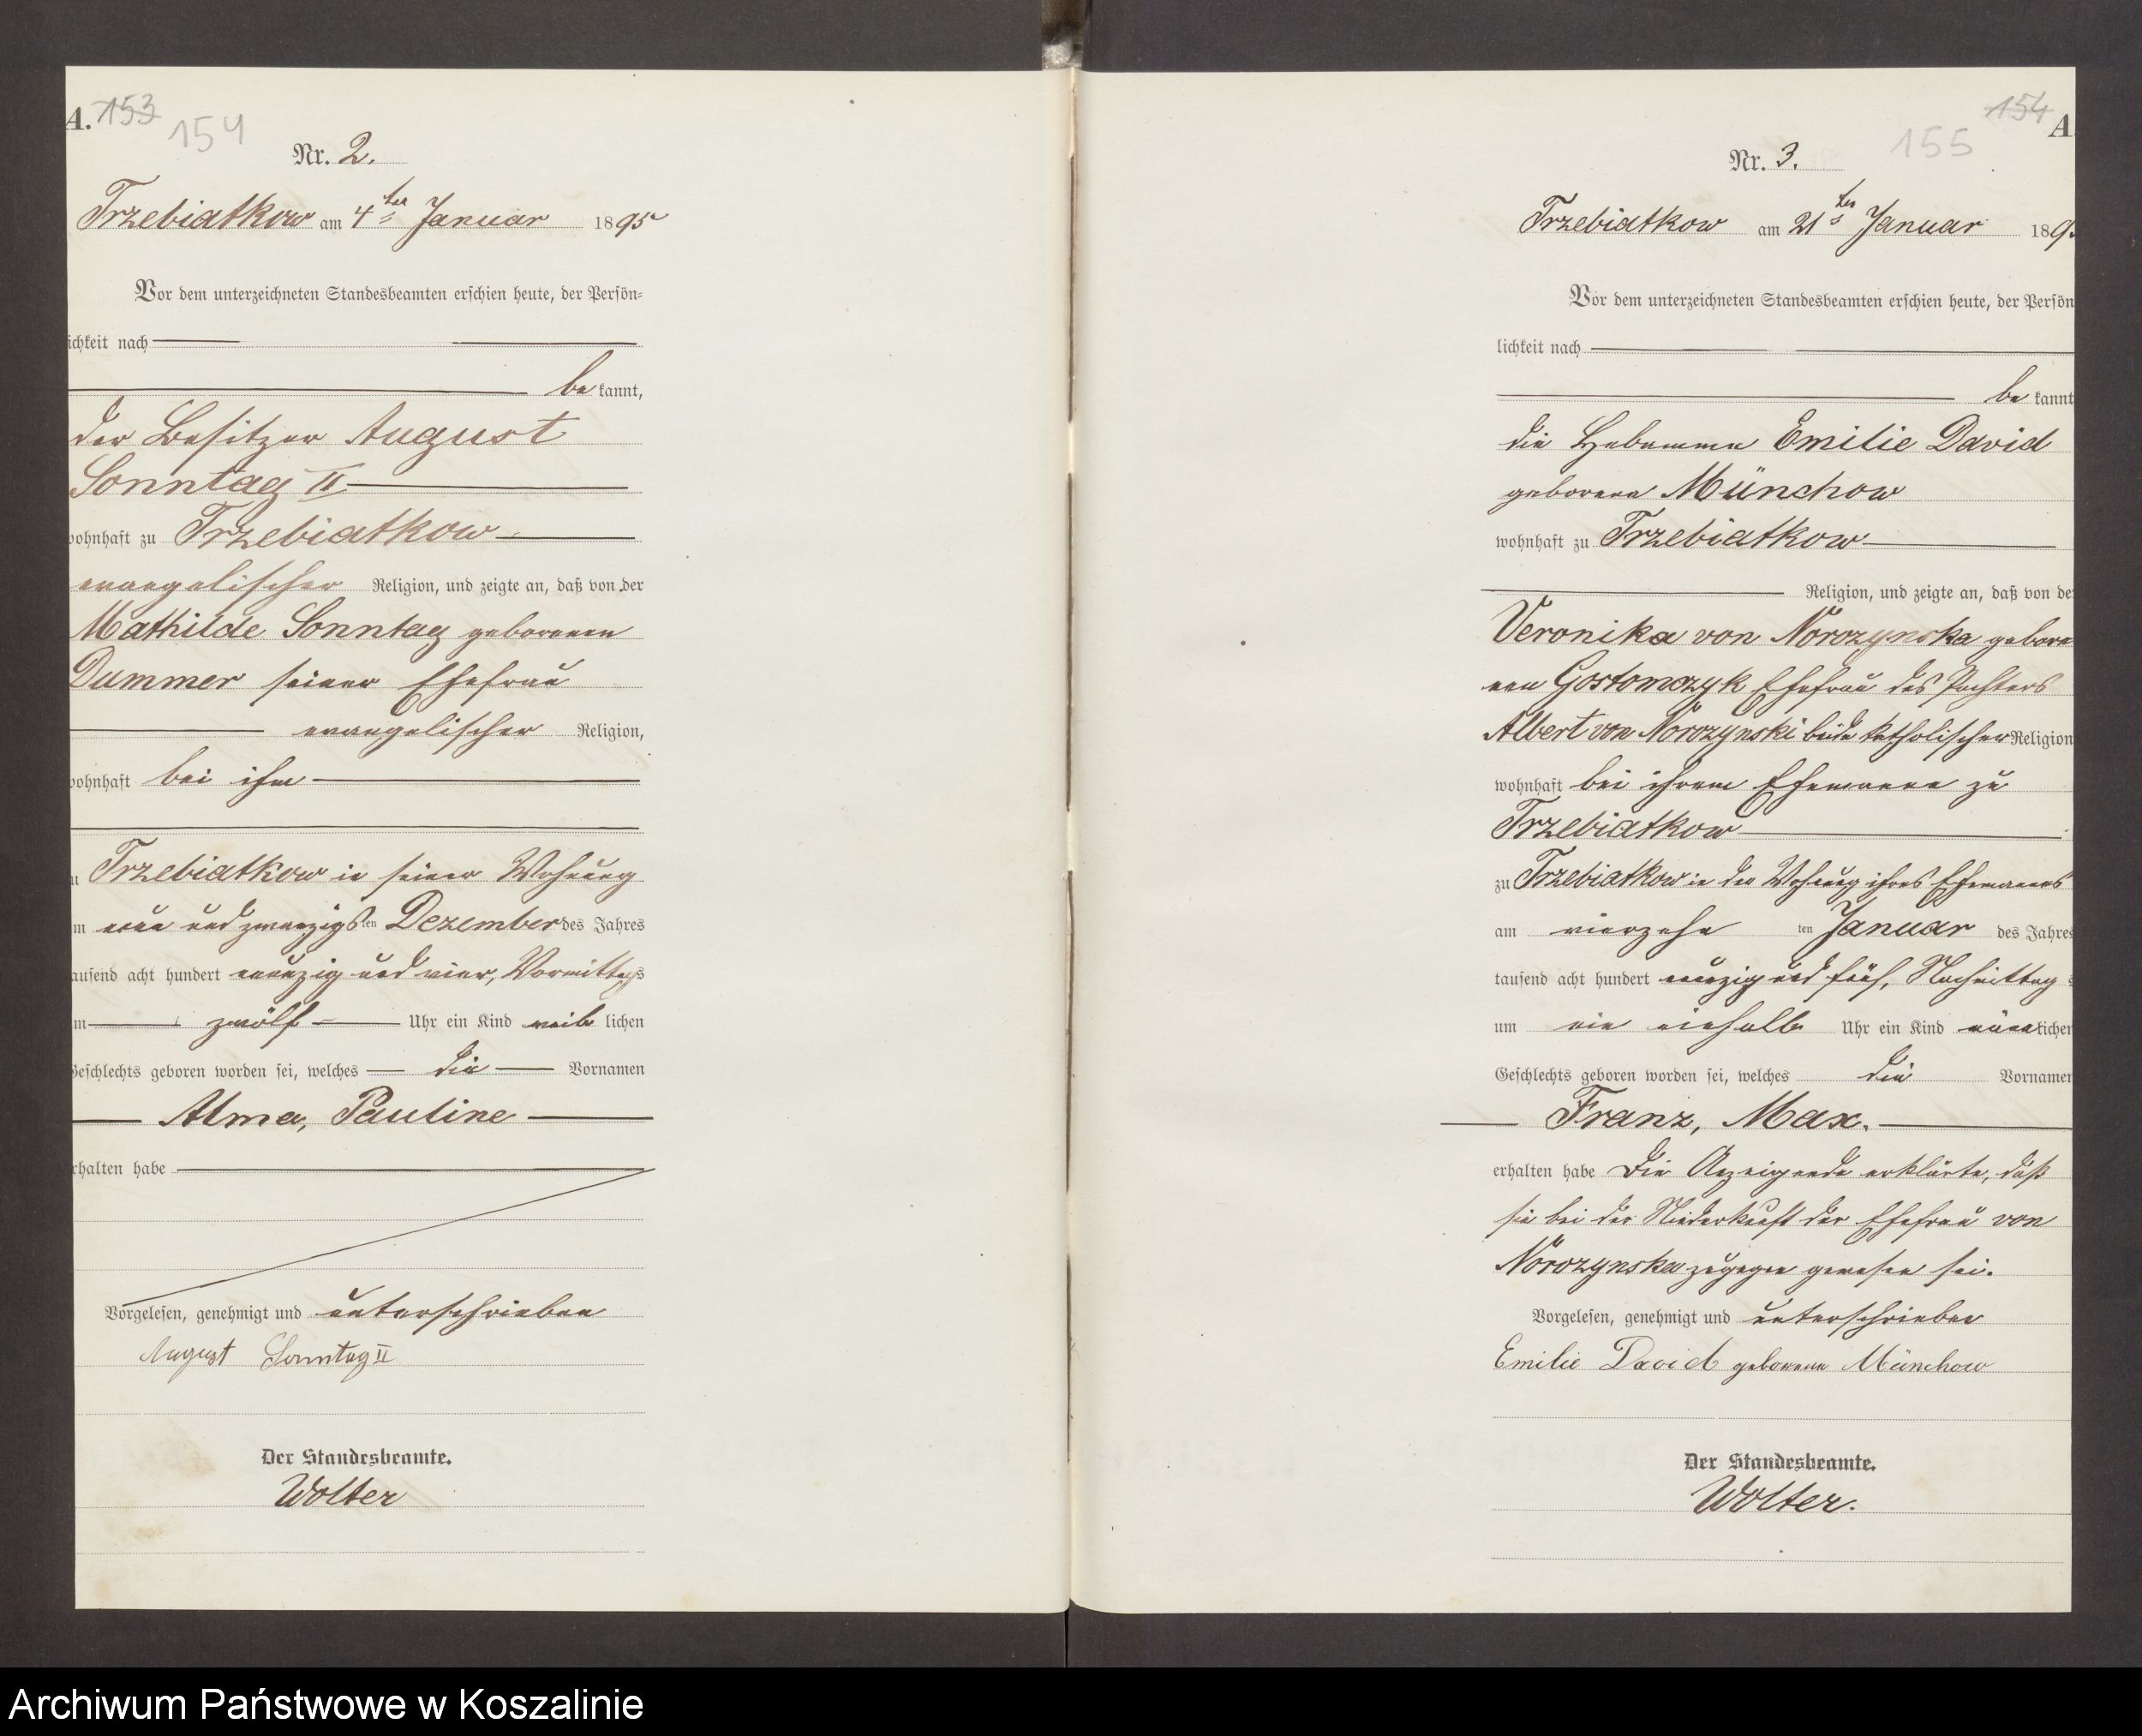 A. 153 154
Nr. 2.
Trzebiatkow am 4ten Januar 1895
Vor dem unterzeichneten Standesbeamten erschien heute, der Persön=
ichkeit nach
be kannt,
der Besitzer August
Sonntag II
wohnhaft zu Trzebiatkow
evangelischer Religion, und zeigte an, daß von der
Mathilde Sonntag geborenen
Dummer seiner Ehefrau
evangelischer Religion,
wohnhaft bei ihm
u Trzebiatkow in seiner Wohnung
m neun und zwanzigsten Dezember des Jahres
ausend acht hundert neunzig und vier, Vormittags
m zwölf Uhr ein Kind weib lichen
Geschlechts geboren worden sei, welches die Vornamen
Alma, Pauline
rhalten habe
Vorgelesen, genehmigt und unterschrieben
August Sonntag II
Der Standesbeamte.
Wolter
154 A
155
Nr. 3.
Trzebiatkow am 21ten Januar 189
Vor dem unterzeichneten Standesbeamten erschien heute, der Persön
lichkeit nach
be kannt
die Hebamme Emilie David
geborene Münchow
wohnhaft zu Trzebiatkow
Religion, und zeigte an, daß von de
Veronika von Norozynska gebore
nen Gostomczyk Ehefrau des Pächters
Albert von Norozynski beide katholischer Religion
wohnhaft bei ihrem Ehemanne zu
Trzebiatkow
zu Trzebiatkow in der Wohnung ihres Ehemannes
am vierzehn ten Januar des Jahres
tausend acht hundert neunzig und fünf, Nachmittag s
um ein einhalb Uhr ein Kind männlichen
Geschlechts geboren worden sei, welches die Vornamen
Franz, Max.
erhalten habe Die Anzeigende erklärte, daß
sie bei der Niederkunft der Ehefrau von
Norozynska zugegen gewesen sei.
Vorgelesen, genehmigt und unterschrieben
Emilie David geborene Münchow
Der Standesbeamte.
Wolter.
Archiwum Państwowe w Koszalinie